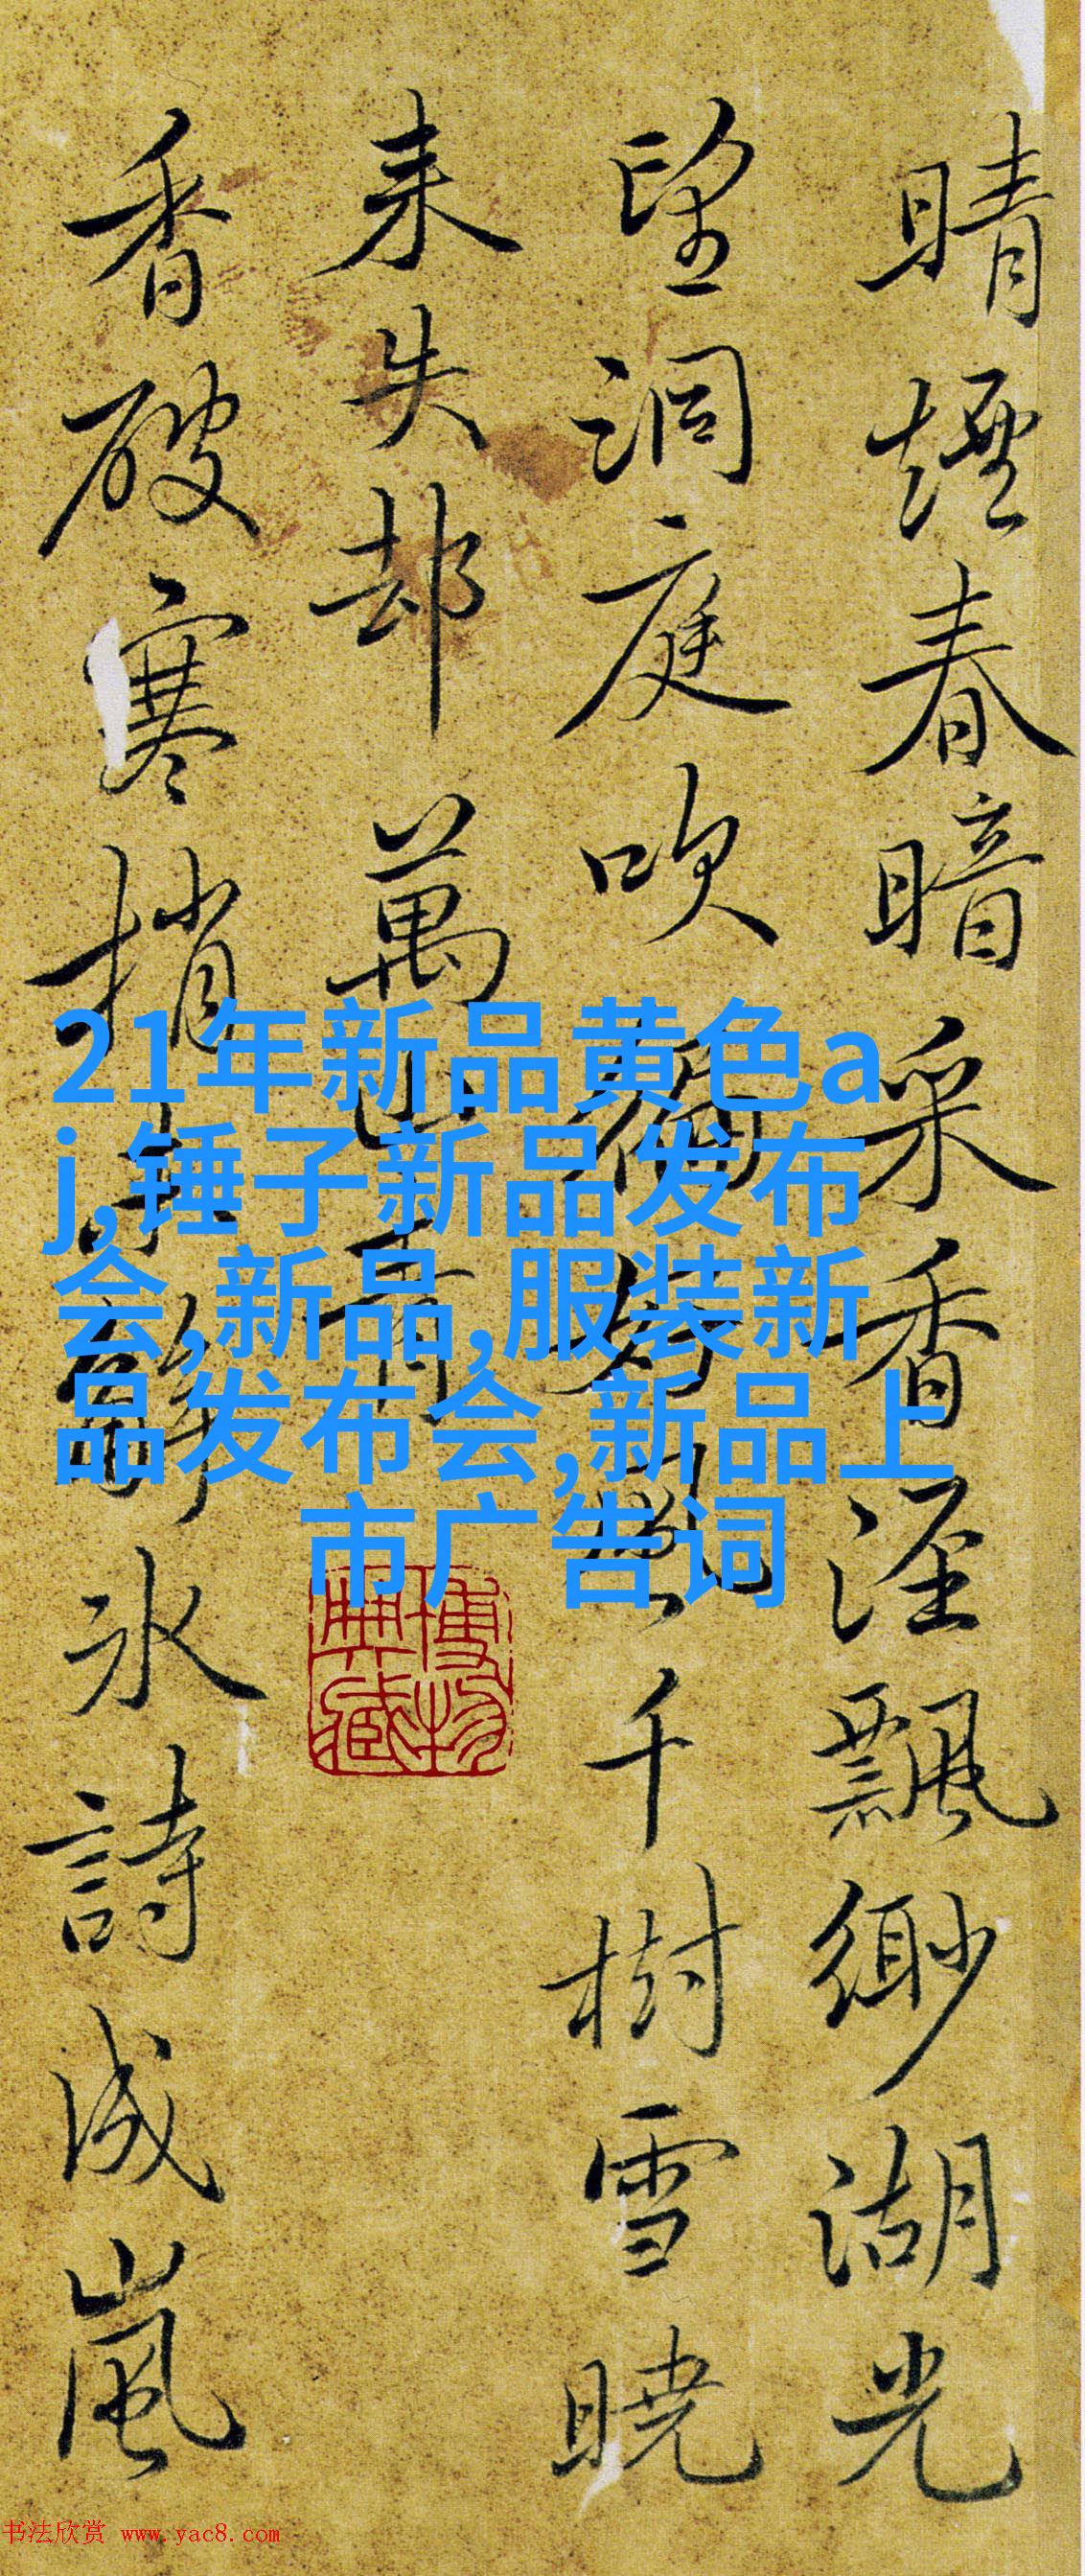 晴煙春暗采香涇飄緲湖光
望洞庭吹千樹雪曉
來失却萬
香破寒梢冰詩成嵐
21年新品黄色a
j,锤子新品发布
会,新品,服装新
品发布会,新品上
市广告词
博物
典藏
书法欣赏 www.yac8.com